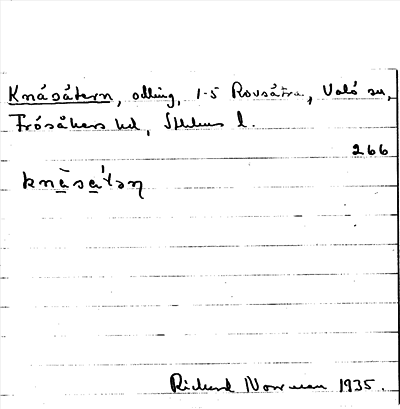 Knåsåtern, odling, 1-5 Rovsättra, Valö sn,
Frösåkers hd, Sthlms l.
266
knàsàtəɳ
Richard Norrman 1935.